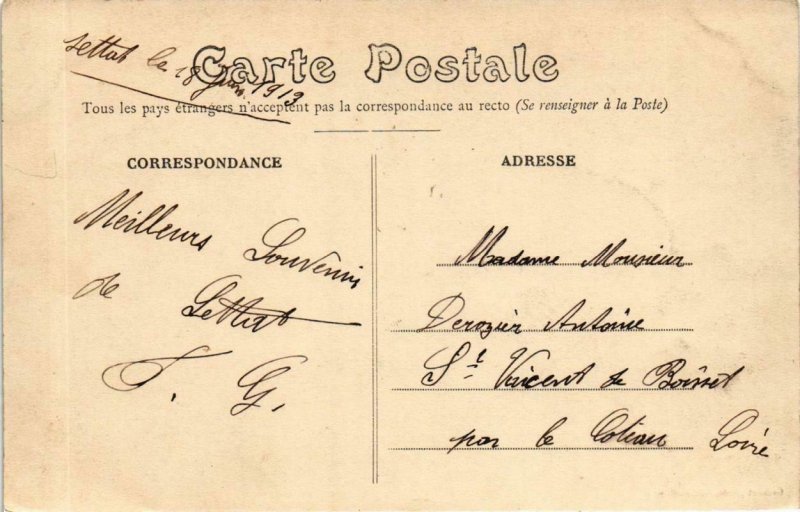 Settat le 18 Juin 1913
Carte Postale
Tous les pays étrangers n'acceptent pas la correspondance au recto (Se renseigner à la Poste)
CORRESPONDANCE
Meilleurs Souvenir
de Settat
F. G.
ADRESSE
Madame Monsieur
Derozier Antoine
St Vincent de Boisset
par le Coteau Loire